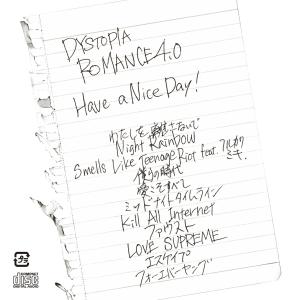 DYSTOPIA
ROMANCE 4.0
Have a Nice Day!
わたしを 離さないで
Night Rainbow
Smells Like Teenage Riot feat. フルカワミキ
僕らの時代
愛こそすべて
ミッドナイトタイムライン
Kill All Internet
ファウスト
LOVE SUPREME
エスケイプ
フォーエバーヤング
COMPACT
disc
DIGITAL AUDIO